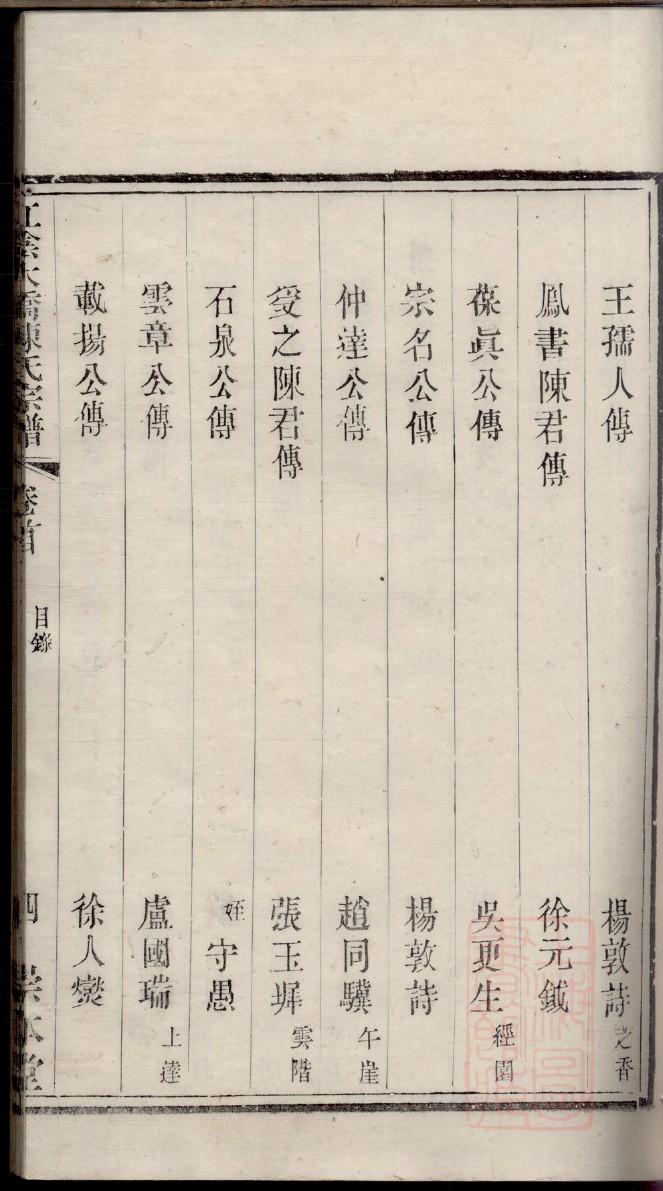 王孺人傳 楊敦詩 芝香
鳳書陳君傳 徐元鉞
葆眞公傳 吳更生 經園
宗名公傳 楊敦詩
仲達公傳 趙同驥 午崖
受之陳君傳 張玉墀 雲階
石泉公傳 姪 守愚
雲章公傳 盧國瑞 上達
載揚公傳 徐人爕
江陰大橋陳氏宗譜 卷首 目錄 四 崇本堂